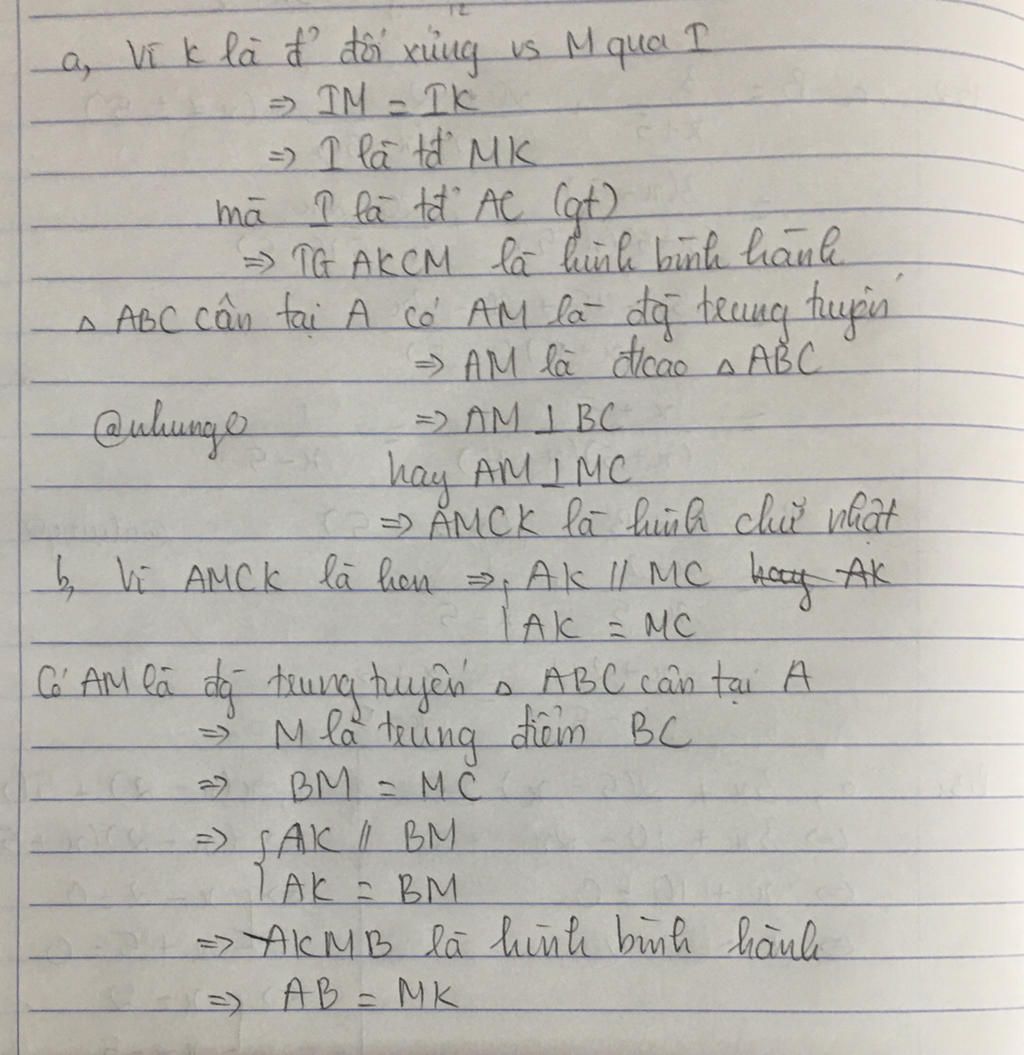 a, Vì K là đ' đối xứng vs M qua I
=> IM = IK
=> I là tđ' MK
mà I là tđ' AC (gt)
=> TG AKCM là hình bình hành
△ ABC cân tại A có AM là đg̀ trung tuyến
=> AM là đ/cao △ ABC
@nhunge => AM ⊥ BC
hay AM ⊥ MC
=> AMCK là hình chữ nhật
b, Vì AMCK là hcn => { AK // MC hay AK
AK = MC
Có AM là đg̀ trung tuyến △ ABC cân tại A
=> M là trung điểm BC
=> BM = MC
=> { AK // BM
AK = BM
=> AKMB là hình bình hành
=> AB = MK